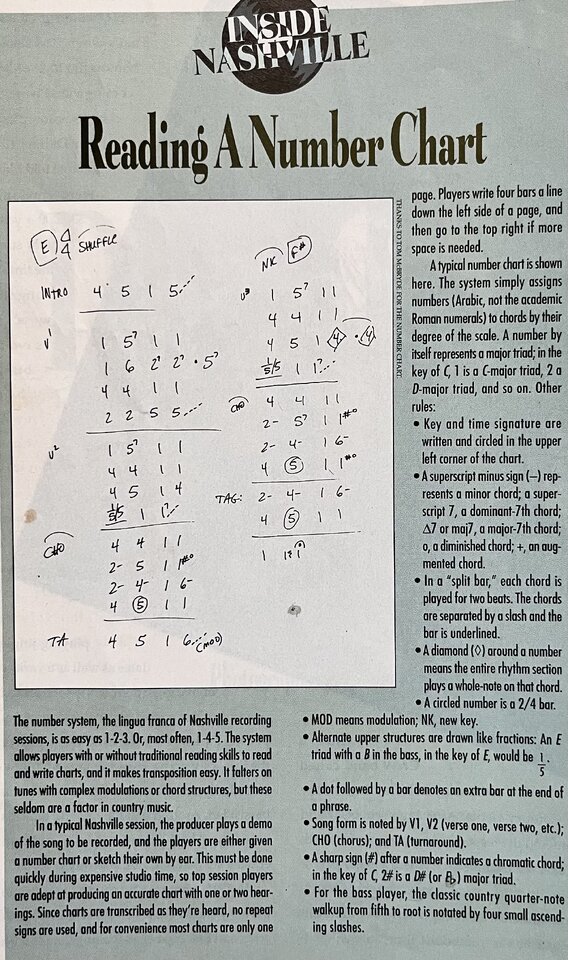 INSIDE
NASHVILLE
Reading A Number Chart
E 4/4 SHUFFLE
INTRO 4 5 1 5
V1 1 5⁷ 1 1
1 6 2⁷ 2⁷ • 5⁷
4 4 1 1
2 2 5 5
V2 1 5⁷ 1 1
4 4 1 1
4 5 1 4
1/5/5 1 1
CHO 4 4 1 1
2- 5 1 1
2- 4- 1 6-
4 5 1 1
TA 4 5 1 6 (MOD)
NK F#
V3 1 5⁷ 1 1
4 4 1 1
4 5 1 4 • 4
1/5/5 1 1
CHO 4 4 1 1
2- 5⁷ 1 1
2- 4- 1 6-
4 5 1 1
TAG: 2- 4- 1 6-
4 5 1 1
1 1 1
THANKS TO TOM McBRYDE FOR THE NUMBER CHART
The number system, the lingua franca of Nashville recording
sessions, is as easy as 1-2-3. Or, most often, 1-4-5. The system
allows players with or without traditional reading skills to read
and write charts, and it makes transposition easy. It falters on
tunes with complex modulations or chord structures, but these
seldom are a factor in country music.
In a typical Nashville session, the producer plays a demo
of the song to be recorded, and the players are either given
a number chart or sketch their own by ear. This must be done
quickly during expensive studio time, so top session players
are adept at producing an accurate chart with one or two hear-
ings. Since charts are transcribed as they're heard, no repeat
signs are used, and for convenience most charts are only one
page. Players write four bars a line
down the left side of a page, and
then go to the top right if more
space is needed.
A typical number chart is shown
here. The system simply assigns
numbers (Arabic, not the academic
Roman numerals) to chords by their
degree of the scale. A number by
itself represents a major triad; in the
key of C, 1 is a C-major triad, 2 a
D-major triad, and so on. Other
rules:
• Key and time signature are
written and circled in the upper
left corner of the chart.
• A superscript minus sign (–) rep-
resents a minor chord; a super-
script 7, a dominant-7th chord;
Δ7 or maj7, a major-7th chord;
o, a diminished chord; +, an aug-
mented chord.
• In a "split bar," each chord is
played for two beats. The chords
are separated by a slash and the
bar is underlined.
• A diamond (◊) around a number
means the entire rhythm section
plays a whole-note on that chord.
• A circled number is a 2/4 bar.
• MOD means modulation; NK, new key.
• Alternate upper structures are drawn like fractions: An E
triad with a B in the bass, in the key of E, would be 1/5.
• A dot followed by a bar denotes an extra bar at the end of
a phrase.
• Song form is noted by V1, V2 (verse one, verse two, etc.);
CHO (chorus); and TA (turnaround).
• A sharp sign (#) after a number indicates a chromatic chord;
in the key of C, 2# is a D# (or E♭) major triad.
• For the bass player, the classic country quarter-note
walkup from fifth to root is notated by four small ascend-
ing slashes.